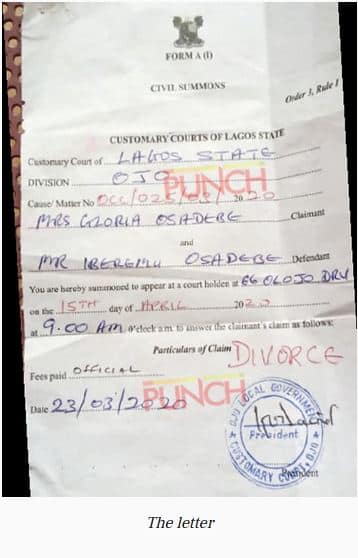 FORM A (I)
CIVIL SUMMONS
Order 3, Rule 1
CUSTOMARY COURTS OF LAGOS STATE
Customary Court of LAGOS STATE
DIVISION OJO
PUNCH
Cause/ Matter No 2020
MRS GLORIA OSADEBE Claimant
and
MR OSADEBE Defendant
You are hereby summoned to appear at a court holden at 66 OLOJO DRV
on the 15TH day of APRIL 2020
at 9.00 AM o'clock a.m. to answer the claimant's claim as follows:
Particulars of Claim DIVORCE
Fees paid OFFICIAL
PUNCH
Date 23/03/2020
OJO LOCAL GOVERNMENT
President
CUSTOMARY COURT OJO
President
The letter